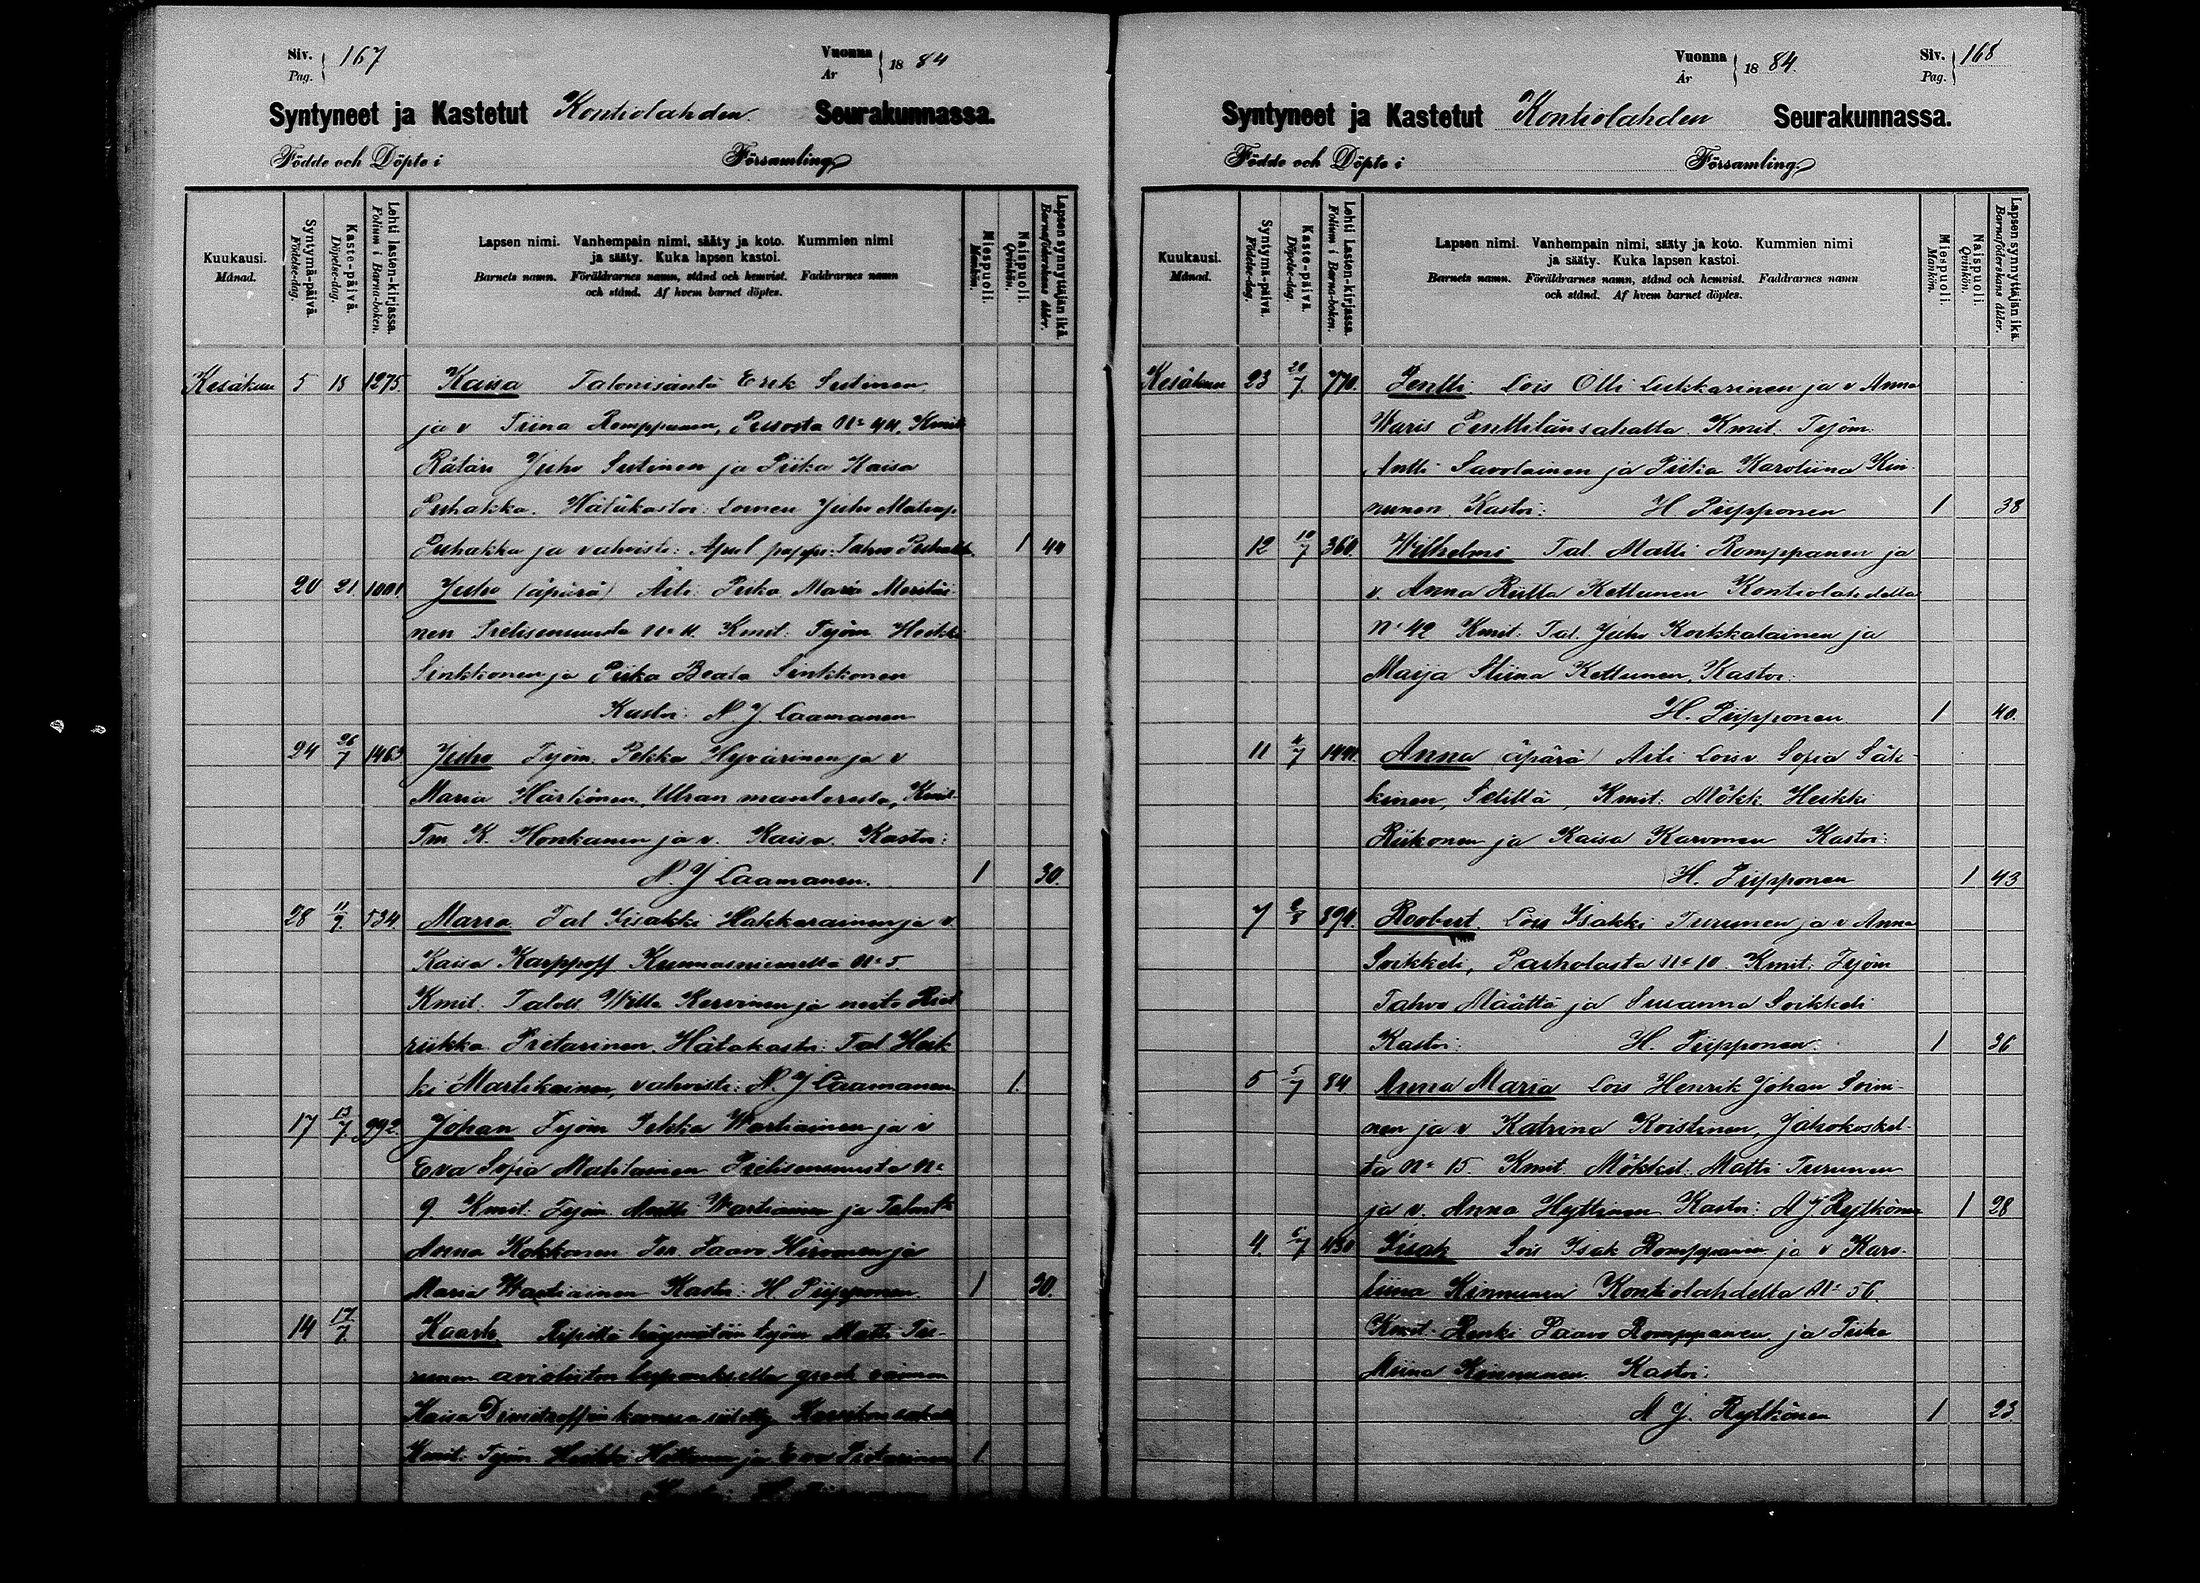 Siv. Pag. 167 Vuonna År 1884
Syntyneet ja Kastetut Kontiolahden Seurakunnassa.
Födde och Döpte i Församling
Kuukausi. Månad.
Syntymä-päivä. Födelse-dag.
Kaste-päivä. Döpelse-dag.
Lehti lasten-kirjassa. Folium i Barna-boken.
Lapsen nimi. Vanhempain nimi, sääty ja koto. Kummien nimi
ja sääty. Kuka lapsen kastoi.
Barnets namn. Föräldrarnes namn, stånd och hemvist. Faddrarnes namn
och stånd. Af hvem barnet döptes.
Miespuoli. Mankön.
Naispuoli. Qvinkön.
Lapsen synnyttäjän ikä. Barnaföderskans ålder.
Kesäkuu 5 18 1275 Kaisa Talonisäntä Erik Sutinen
ja v Tiina Romppanen, No 44, Kmit
Rätäri Juho Sutinen ja Piika Kaisa
Puhakka. Hätäkastoi: Loinen Juho Matinp.
Puhakka ja vahvisti: Apul pappi Tahvo Puhakka 1 44
20 21 1001 Juho (äpärä) Äiti: Piika Maria Moni
nen Pielisensuusta No Kmit: Tyõm Heikki
Sinkkonen ja Piika Beata Sinkkonen
Kastoi: N. J. Laamanen
24 26/7 1463 Juho Työm. Pekka Hyvärinen ja v
Maria Härkönen, Utran mantereelta, Kmit
Tm K. Honkanen ja v. Kaisa. Kastoi:
N. J Laamanen. 1 30.
28 11/7 534 Maria Tal Iisakki Hakkarainen ja v.
Kaisa Karppoff Kunnasniemeltä No 5
Kmit. Ville Kervinen ja neito
riikka Pietarinen. Hätäkastoi: Tal Heik
ki Martikainen, vahvisti: N. J Laamanen 1
17 13/7 992 Johan Työm Pekka Wartiainen ja v
Eva Sofia Mahlainen Pielisensuusta No
9 Kmit: Työm Antti Wartiainen ja
Anna Kokkonen Paavo Hirvonen ja
Maria Wartiainen Kastoi: H Piipponen 1 30.
14 17/7 Kaarlo Ripillä käymätöin työm Matti Tu-
runen avioliiton lupauksella greek
Kaisa Dimitroffin kanssa siitetty
Kmit: Työm Heikki ja Eva Pietarinen 1
Siv. Pag. 168 Vuonna År 1884.
Syntyneet ja Kastetut Kontiolahden Seurakunnassa.
Födde och Döpte i Församling
Kuukausi. Månad.
Syntymä-päivä. Födelse-dag.
Kaste-päivä. Döpelse-dag.
Lehti Lasten-kirjassa. Folium i Barna-boken.
Lapsen nimi. Vanhempain nimi, sääty ja koto. Kummien nimi
ja sääty. Kuka lapsen kastoi.
Barnets namn. Föräldrarnes namn, stånd och hemvist. Faddrarnes namn
och stånd. Af hvem barnet döptes.
Miespuoli. Mankön.
Naispuoli. Qvinkön.
Lapsen synnyttäjän ikä. Barnaföderskans ålder.
Kesäkuu 23 20/7. 770. Pentti. Lois Olli Lukkarinen ja v Anna
Waris Kmit. Työm.
Antti Savolainen ja Piika Karoliina Kin
nunen Kastoi: H Piipponen 1 38
12 19/7 360. Wilhelmi Tal. Matti Romppanen ja
v. Anna Riitta Kettunen Kontiolahdelta
No 42 Kmit. Tal. Juho Korkkalainen ja
Maija Stiina Kettunen, Kastoi:
H. Piipponen 1 40.
11 4/7 Anna (äpärä) Äiti Lois v. Sofia Säk-
kinen, Selittä, Kmit: Mökk. Heikki
Riikonen ja Kaisa Karvonen Kastoi:
H. Piipponen 1 43
7 Roobert. Lois Isakki Turunen ja v Anna
Soikkeli, Paiholasta No 10. Kmit: Työm
Tahvo Määttä ja Susanna Soikkeli
Kastoi: H. Piipponen 1 36
5 5/7 84 Anna Maria Lois Henrik Johan Soini-
nen ja v Katrina Koistinen, Jakokoskel-
ta No 15. Kmit Mökkil. Matti Turunen
ja v. Anna Hyttinen Kastoi: A J Rytkönen 1 28
4. 6/7 430 Iisak Lois Isak Romppanen ja v Karo-
liina Kinnunen Kontiolahdelta No 56.
Kmit. Renki Paavo Romppanen ja Piika
Miina Kinnunen. Kastoi:
A J. Rytkönen 1 23